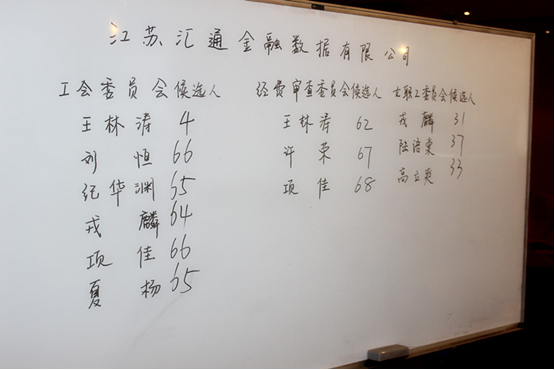 江苏汇通金融数据有限公司
工会委员会候选人
王林涛 4
刘恒 66
纪华渊 65
戎麟 64
项佳 66
夏杨 65
经费审查委员会候选人
王林涛 62
许荣 67
项佳 68
女职工委员会候选人
戎麟 31
陆语東 37
高立爽 33